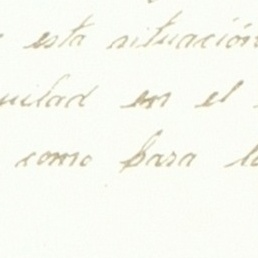 esta situación
uidad en el
como para lo